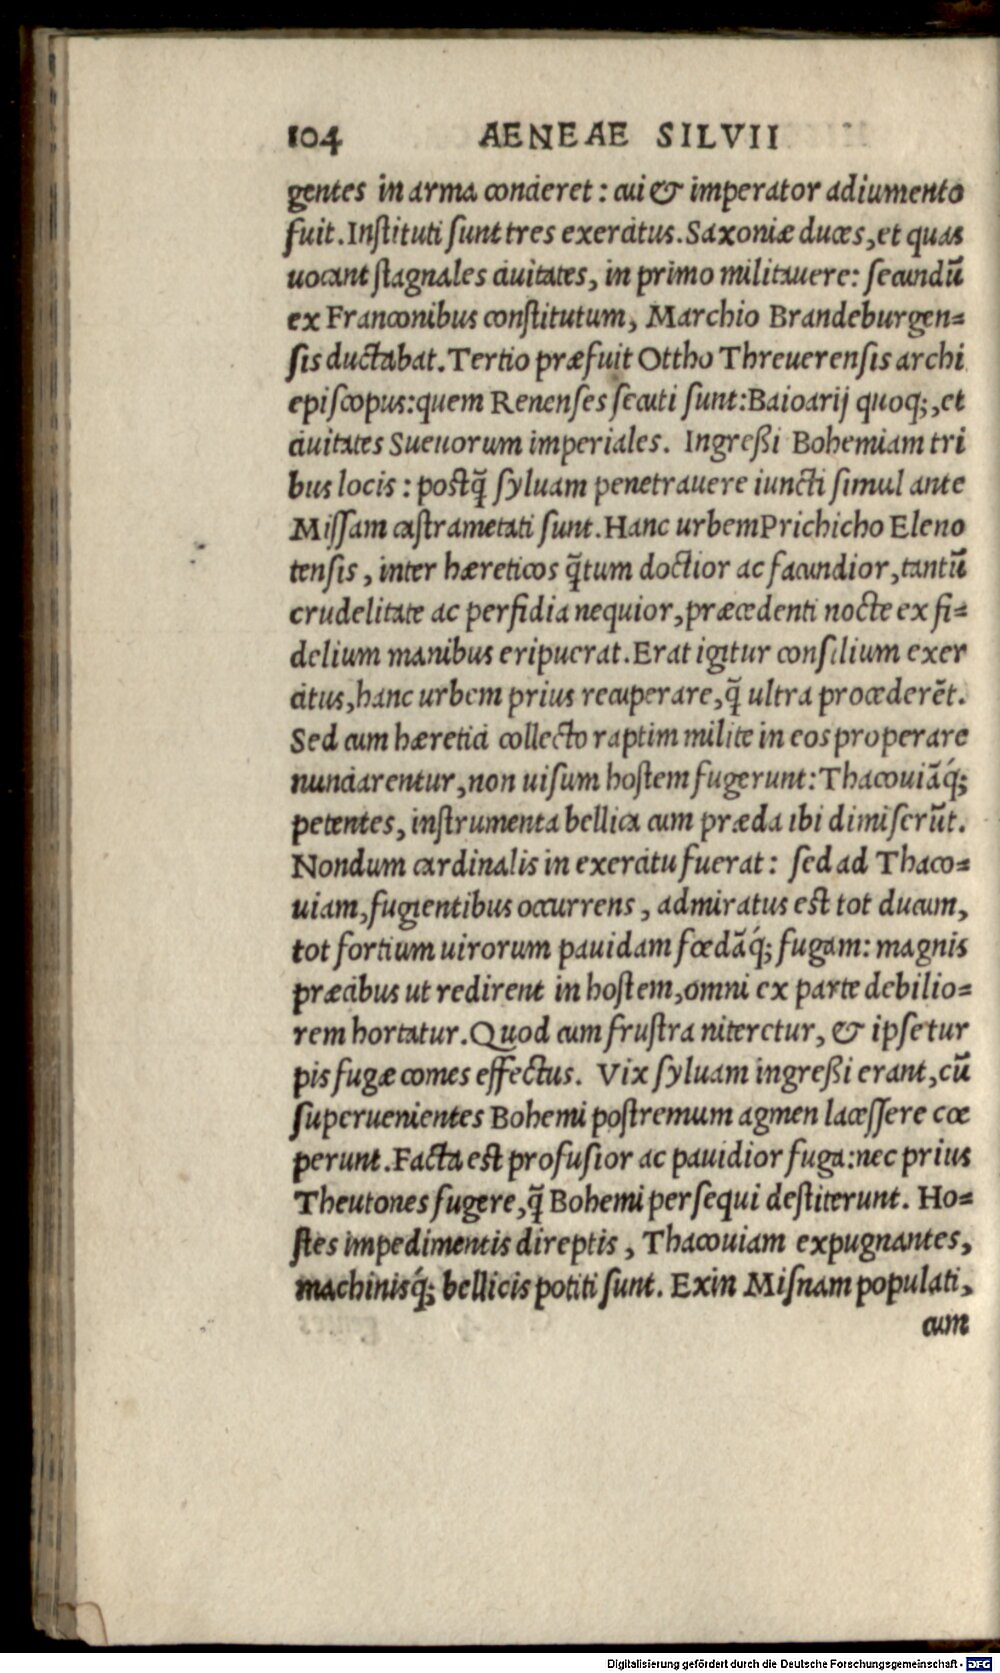 104 AENEAE SILVII
gentes in arma concieret: cui & imperator adiumento
fuit. Instituti sunt tres exercitus. Saxoniæ duces, et quas
uocant stagnales ciuitates, in primo militauere: secundũ
ex Franconibus constitutum, Marchio Brandeburgen=
sis ductabat. Tertio præfuit Ottho Threuerensis archi
episcopus: quem Renenses secuti sunt: Baioarij quoq;, et
ciuitates Sueuorum imperiales. Ingreßi Bohemiam tri
bus locis: postq̃ syluam penetrauere iuncti simul ante
Missam castrametati sunt. Hanc urbem Prichicho Eleno
tensis, inter hæreticos q̃tum doctior ac facundior, tantũ
crudelitate ac perfidia nequior, præcedenti nocte ex fi=
delium manibus eripuerat. Erat igitur consilium exer
citus, hanc urbem prius recuperare, q̃ ultra procederẽt.
Sed cum hæretici collecto raptim milite in eos properare
nunciarentur, non uisum hostem fugerunt: Thacouiãq́;
petentes, instrumenta bellica cum præda ibi dimiserũt.
Nondum cardinalis in exercitu fuerat: sed ad Thaco=
uiam, fugientibus occurrens, admiratus est tot ducum,
tot fortium uirorum pauidam fœdãq́; fugam: magnis
præcibus ut redirent in hostem, omni ex parte debilio=
rem hortatur. Quod cum frustra niteretur, & ipse tur
pis fugæ comes effectus. Vix syluam ingreßi erant, cũ
superuenientes Bohemi postremum agmen lacessere cœ
perunt. Facta est profusior ac pauidior fuga: nec prius
Theutones fugere, q̃ Bohemi persequi destiterunt. Ho=
stes impedimentis direptis, Thacouiam expugnantes,
machinisq́; bellicis potiti sunt. Exin Misnam populati,
cum
Digitalisierung gefördert durch die Deutsche Forschungsgemeinschaft - DFG